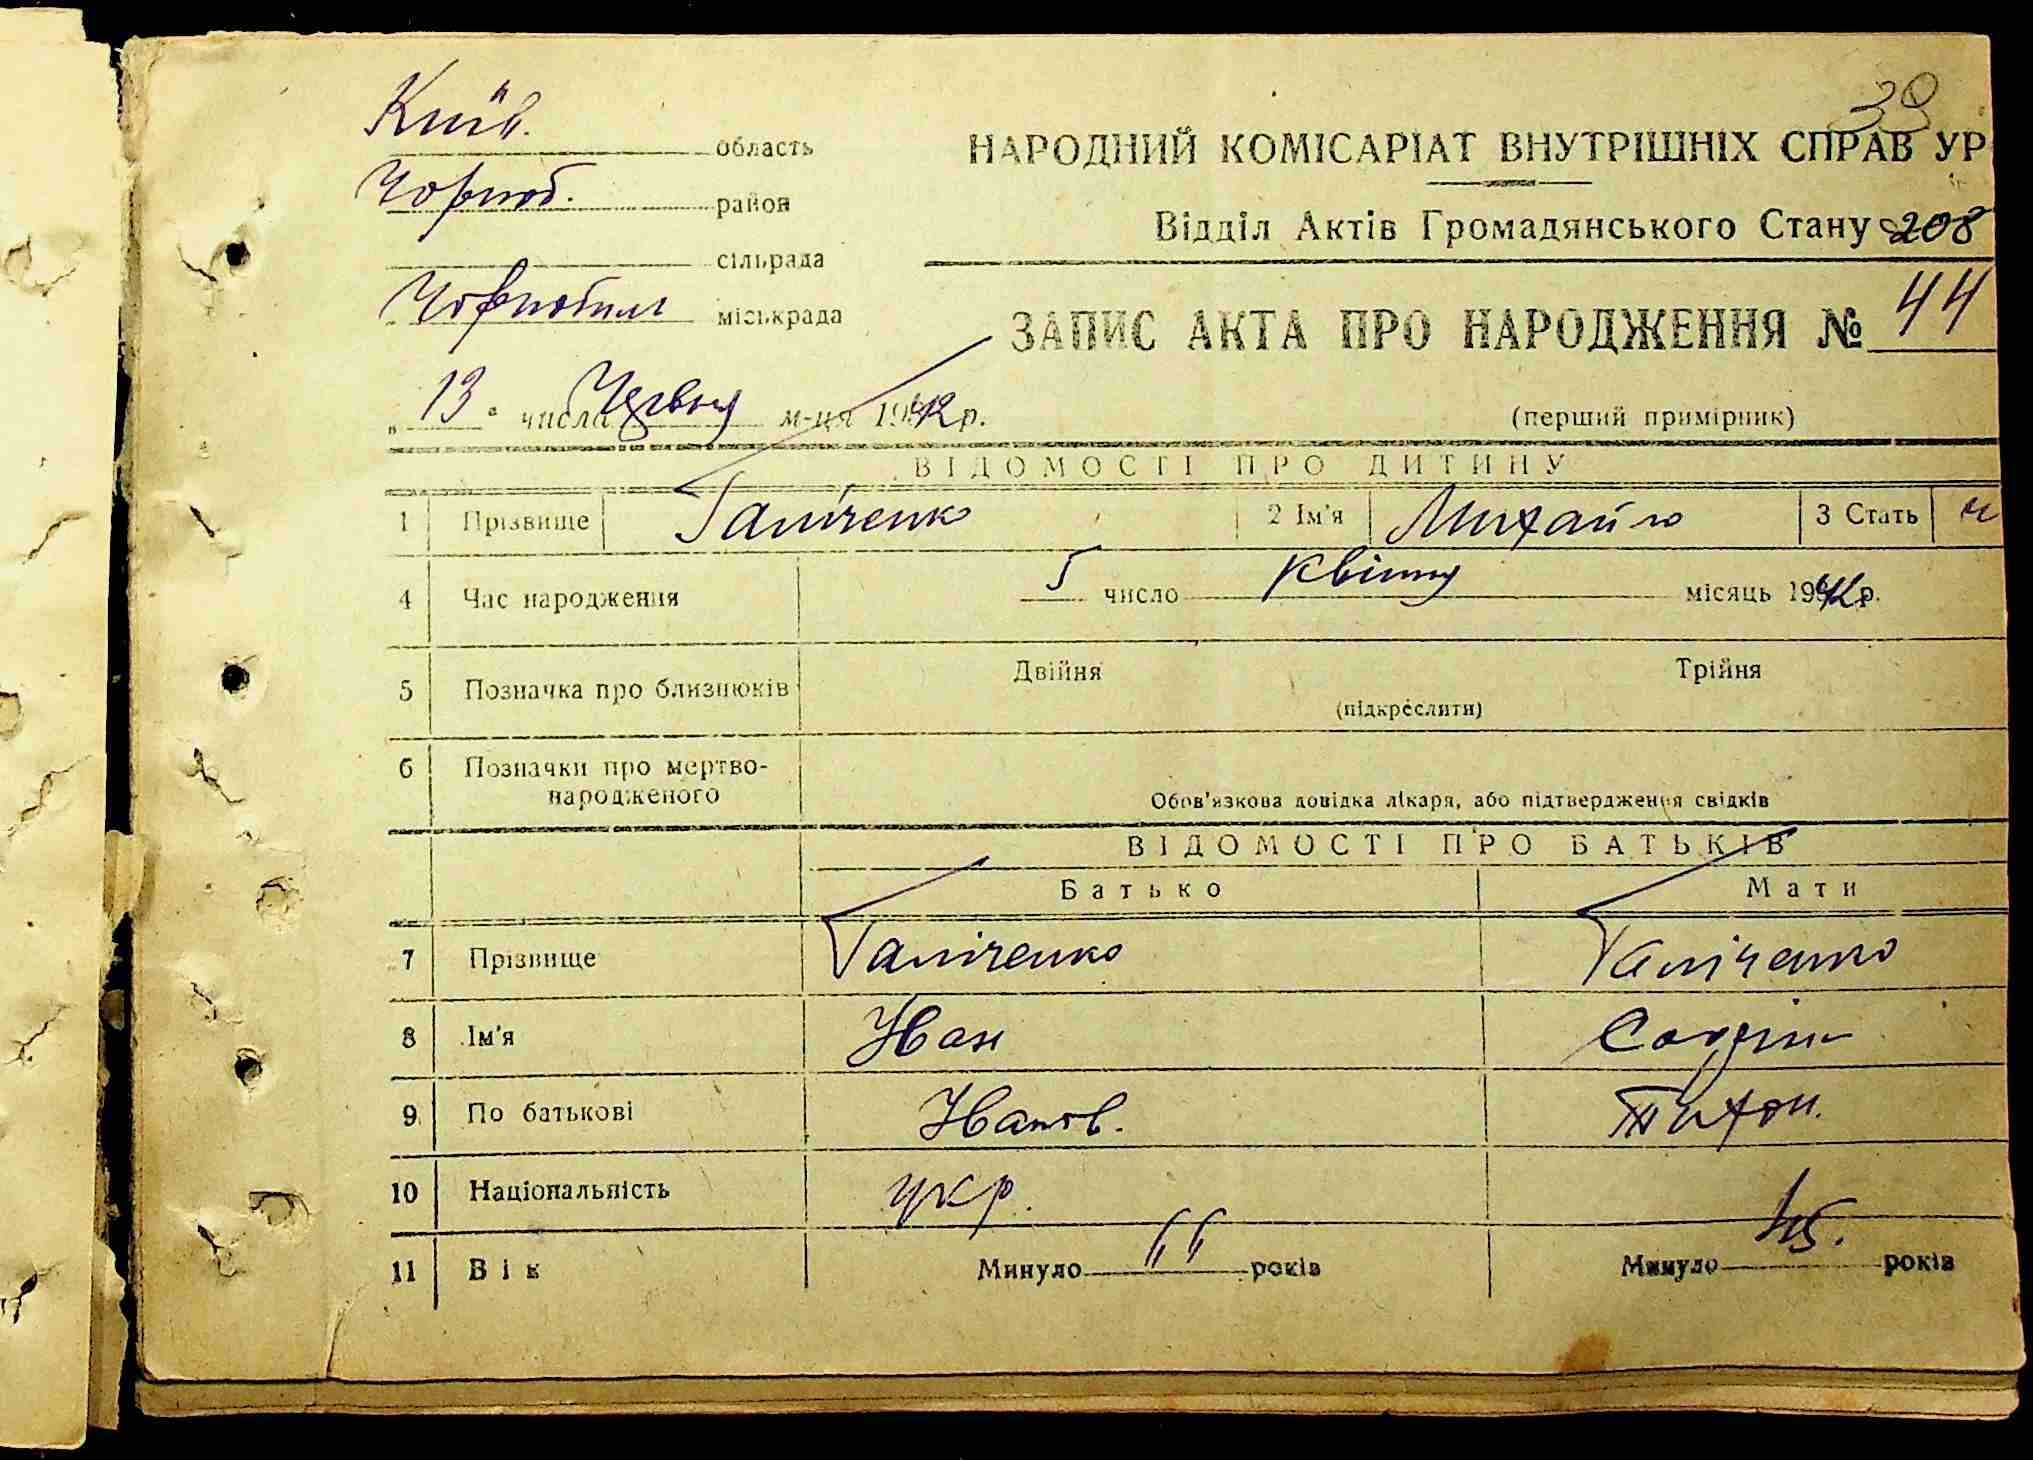 39
Київ. область
Чорноб. район
сільрада
Чорнобил міськрада
НАРОДНИЙ КОМІСАРІАТ ВНУТРІШНІХ СПРАВ УР
Відділ Актів Громадянського Стану 208
ЗАПИС АКТА ПРО НАРОДЖЕННЯ № 44
„13" числа Червня м-ця 1942 р.
(перший примірник)
ВІДОМОСТІ ПРО ДИТИНУ
1 Прізвище Галіченко 2 Ім'я Михайло 3 Стать ч
4 Час народження 5 число квітня місяць 1942 р.
5 Позначка про близнюків Двійня Трійня
(підкреслити)
6 Позначки про мертво-
народженого Обов'язкова довідка лікаря, або підтвердження свідків
ВІДОМОСТІ ПРО БАТЬКІВ
Батько Мати
7 Прізвище Галіченко Галіченко
8 Ім'я Иван
9 По батькові Иванов. Тихон.
10 Національність укр.
11 Вік Минуло " " років Минуло 45. років